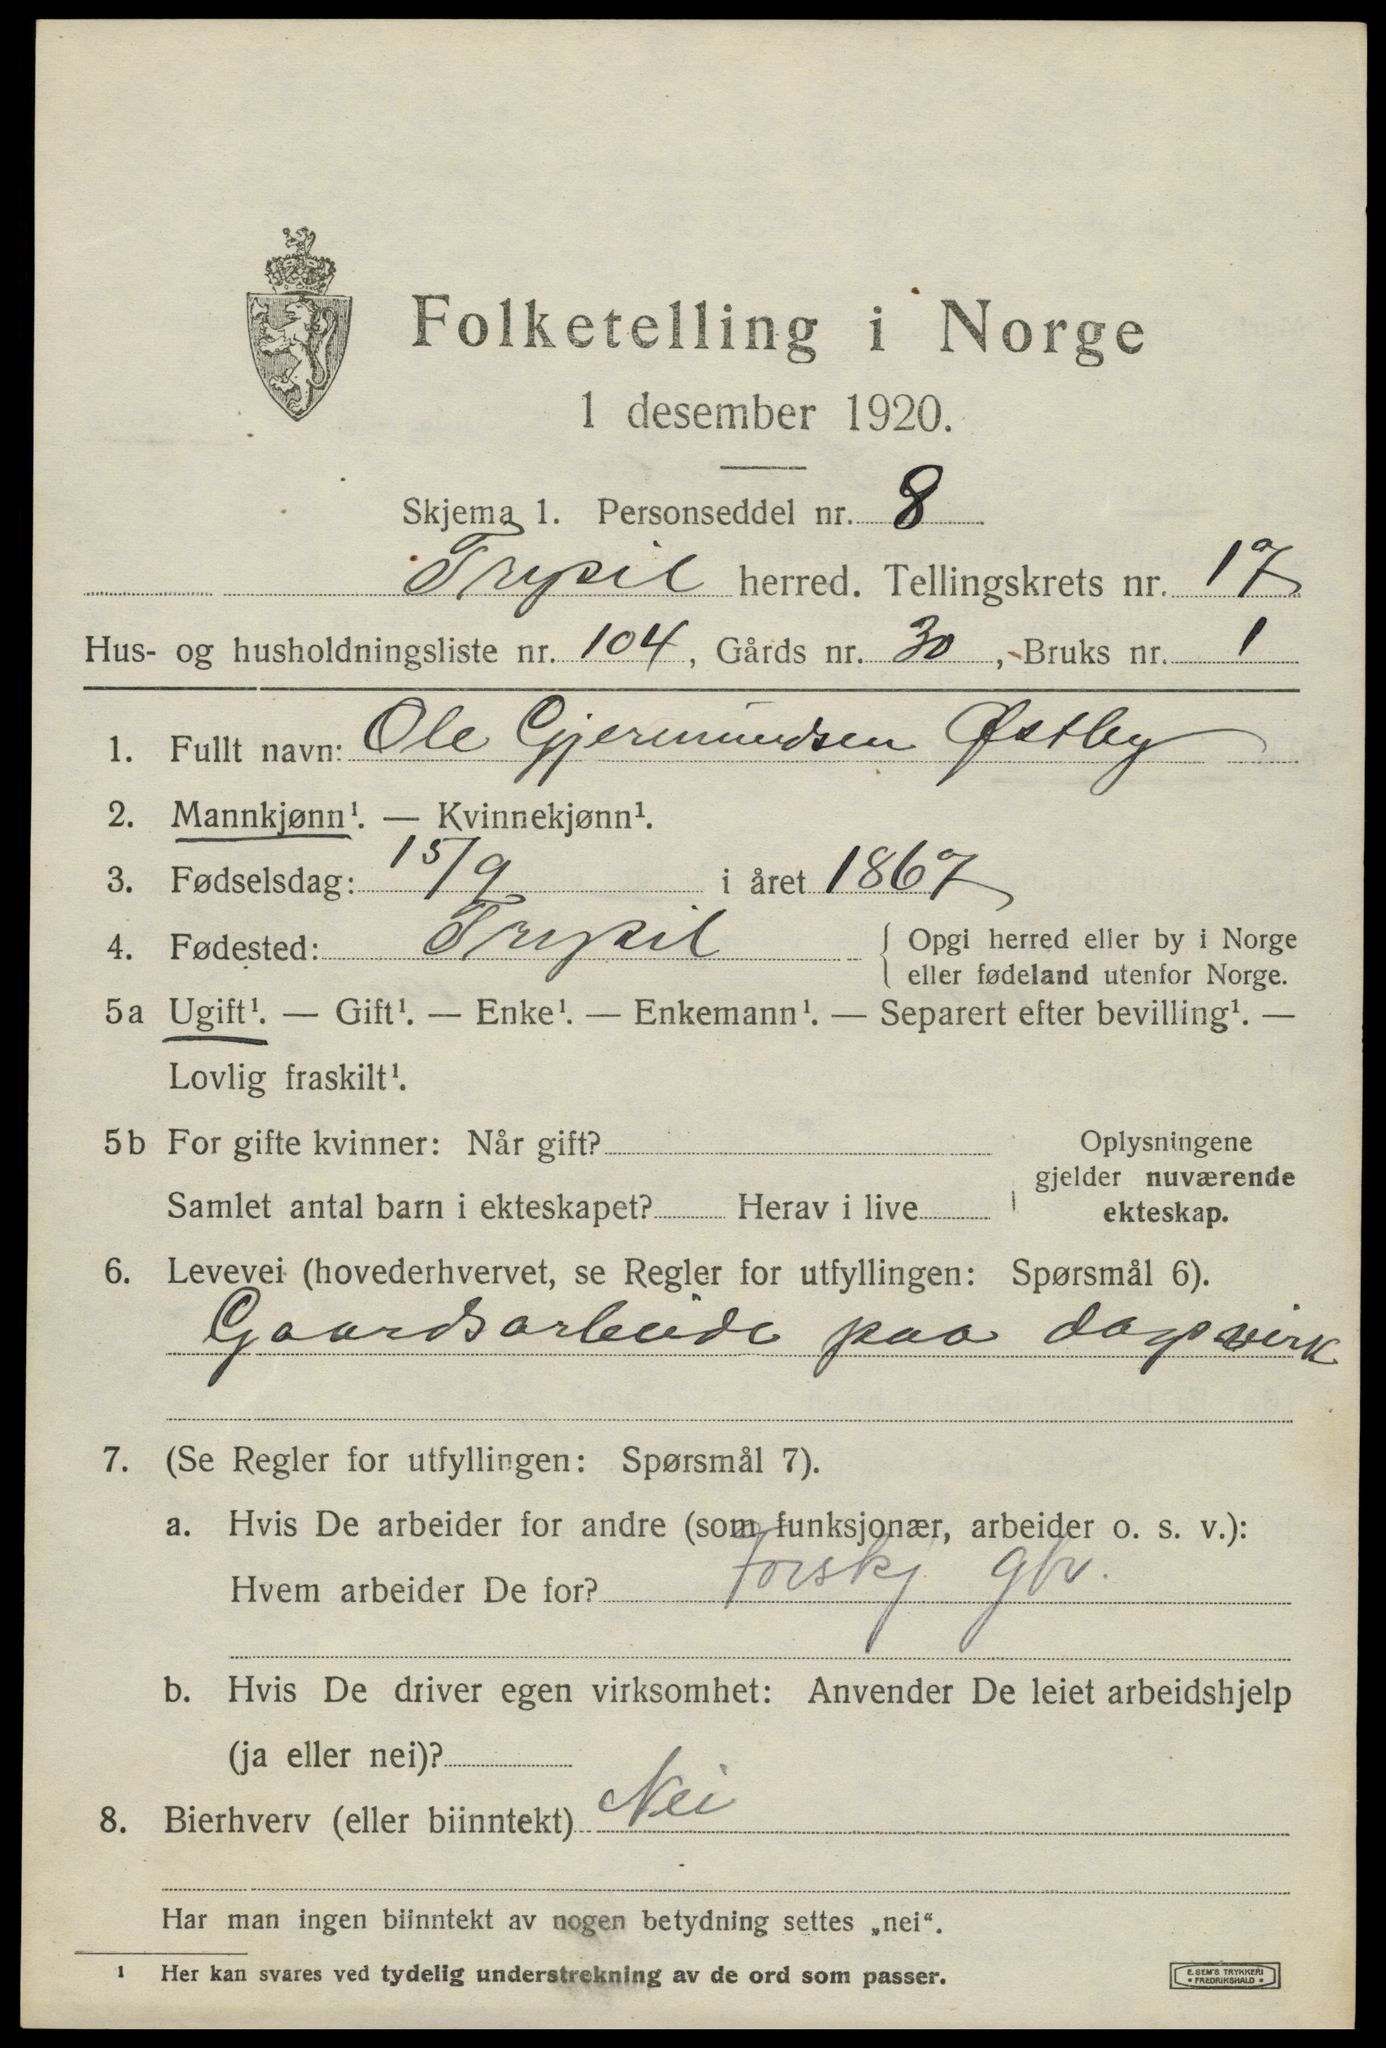 Folketelling i Norge
1 desember 1920.
Skjema 1. Personseddel nr. 8
Trysil herred. Tellingskrets nr. 17
Hus- og husholdningsliste nr. 104, Gårds nr. 30, Bruks nr. 1
1. Fullt navn: Ole Gjermundsen Østby
2. Mannkjønn¹. — Kvinnekjønn¹.
3. Fødselsdag: 15/9 i året 1867
4. Fødested: Trysil { Opgi herred eller by i Norge
eller fødeland utenfor Norge.
5a Ugift¹. — Gift¹. — Enke¹. — Enkemann¹. — Separert efter bevilling¹. —
Lovlig fraskilt¹.
5b For gifte kvinner: Når gift?
Samlet antal barn i ekteskapet? Herav i live
Oplysningene
gjelder nuværende
ekteskap.
6. Levevei (hovederhvervet, se Regler for utfyllingen: Spørsmål 6).
Gaardsarbeide paa dagsvirk
7. (Se Regler for utfyllingen: Spørsmål 7).
a. Hvis De arbeider for andre (som funksjonær, arbeider o. s. v.):
Hvem arbeider De for? Forskj gbr.
b. Hvis De driver egen virksomhet: Anvender De leiet arbeidshjelp
(ja eller nei)?
8. Bierhverv (eller biinntekt) Nei
Har man ingen biinntekt av nogen betydning settes „nei“.
¹ Her kan svares ved tydelig understrekning av de ord som passer.
E. SEM'S TRYKKERI
• FREDRIKSHALD •